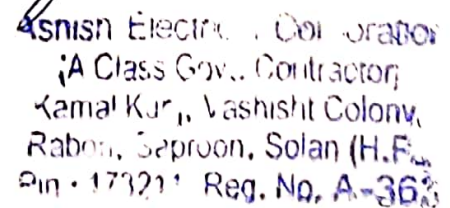 Ashish Electric Corporation
(A Class Gov.. Contractor)
Kamal Kunj, Vashisht Colony,
Rabon, Saproon, Solan (H.P.)
Pin - 173211 Reg. No. A-363